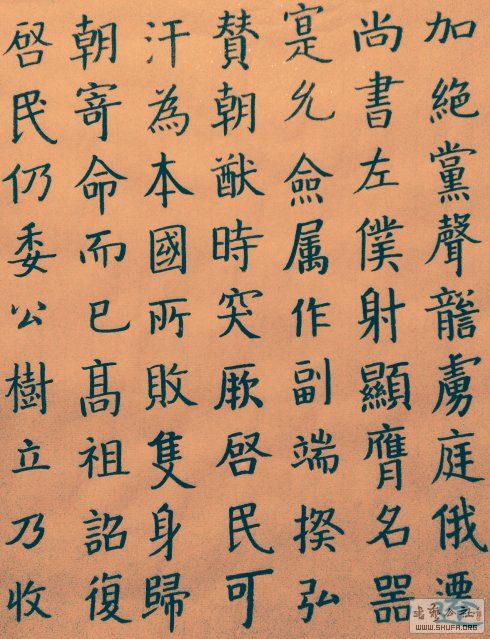 加絕黨聲讋虜庭俄遷
尚書左僕射顯膺名噐
寔允僉属作副端揆弘
賛朝猷時突厥啓民可
汗為本國所敗隻身歸
朝寄命而已髙祖詔復
啓民仍委公樹立乃收
WWW.SHUFA.ORG